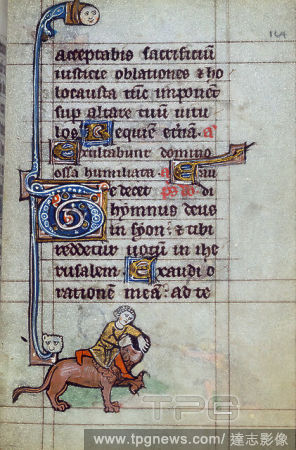 164
acceptabis sacrificiū
iusticie oblationes & ho
locausta tūc imponēt
sup altare tuū uitu
los Requiē etnā. a
Exultabunt domino
ossa humiliata. a
e decet ps
hymnus deus
in syon: & tibi
reddetur uotū in ihe
rusalem. Exaudi o
rationē meā: ad te
TPG
www.tpgnews.com/達志影像